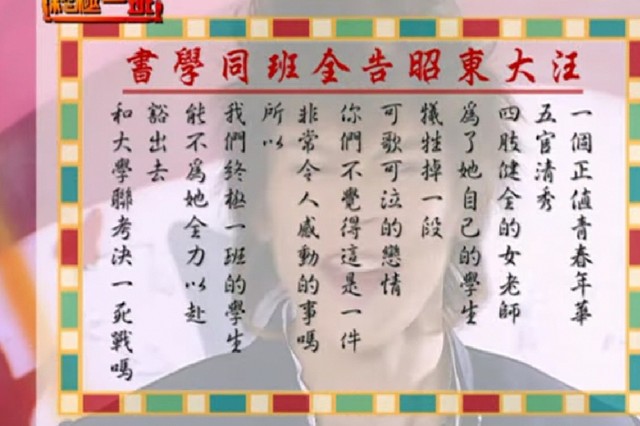 終極一班
汪大東昭告全班同學書
一個正值青春年華
五官清秀
四肢健全的女老師
為了她自己的學生
犧牲掉一段
可歌可泣的戀情
你們不覺得這是一件
非常令人感動的事嗎
所以
我們終極一班的學生
能不為她全力以赴
豁出去
和大學聯考決一死戰嗎